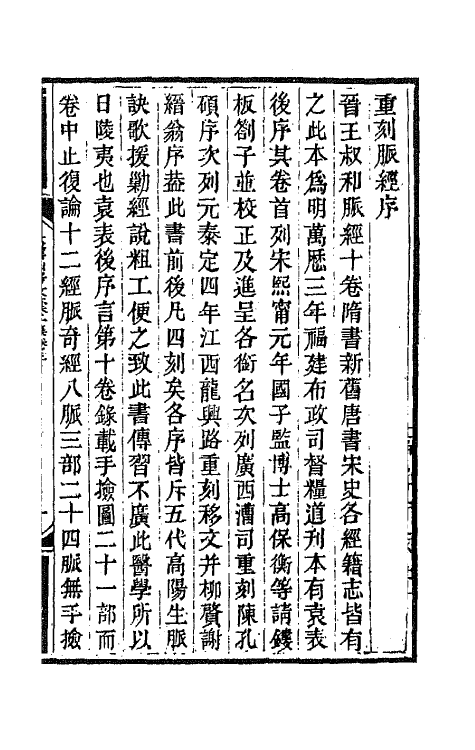 重刻脈經序
晉王叔和脈經十卷隋書新舊唐書宋史各經籍志皆有
之此本爲明萬歷三年福建布政司督糧道刋本有袁表
後序其卷首列宋熙甯元年國子監博士高保衡等請鏤
板劄子並校正及進呈各銜名次列廣西漕司重刻陳孔
碩序次列元泰定四年江西龍興路重刻移文并柳贇謝
縉翁序葢此書前後凡四刻矣各序皆斥五代高陽生脈
訣歌援勦經說粗工便之致此書傳習不廣此醫學所以
日陵夷也袁表後序言第十卷錄載手撿圖二十一部而
卷中止復論十二經脈奇經八脈三部二十四脈無手撿